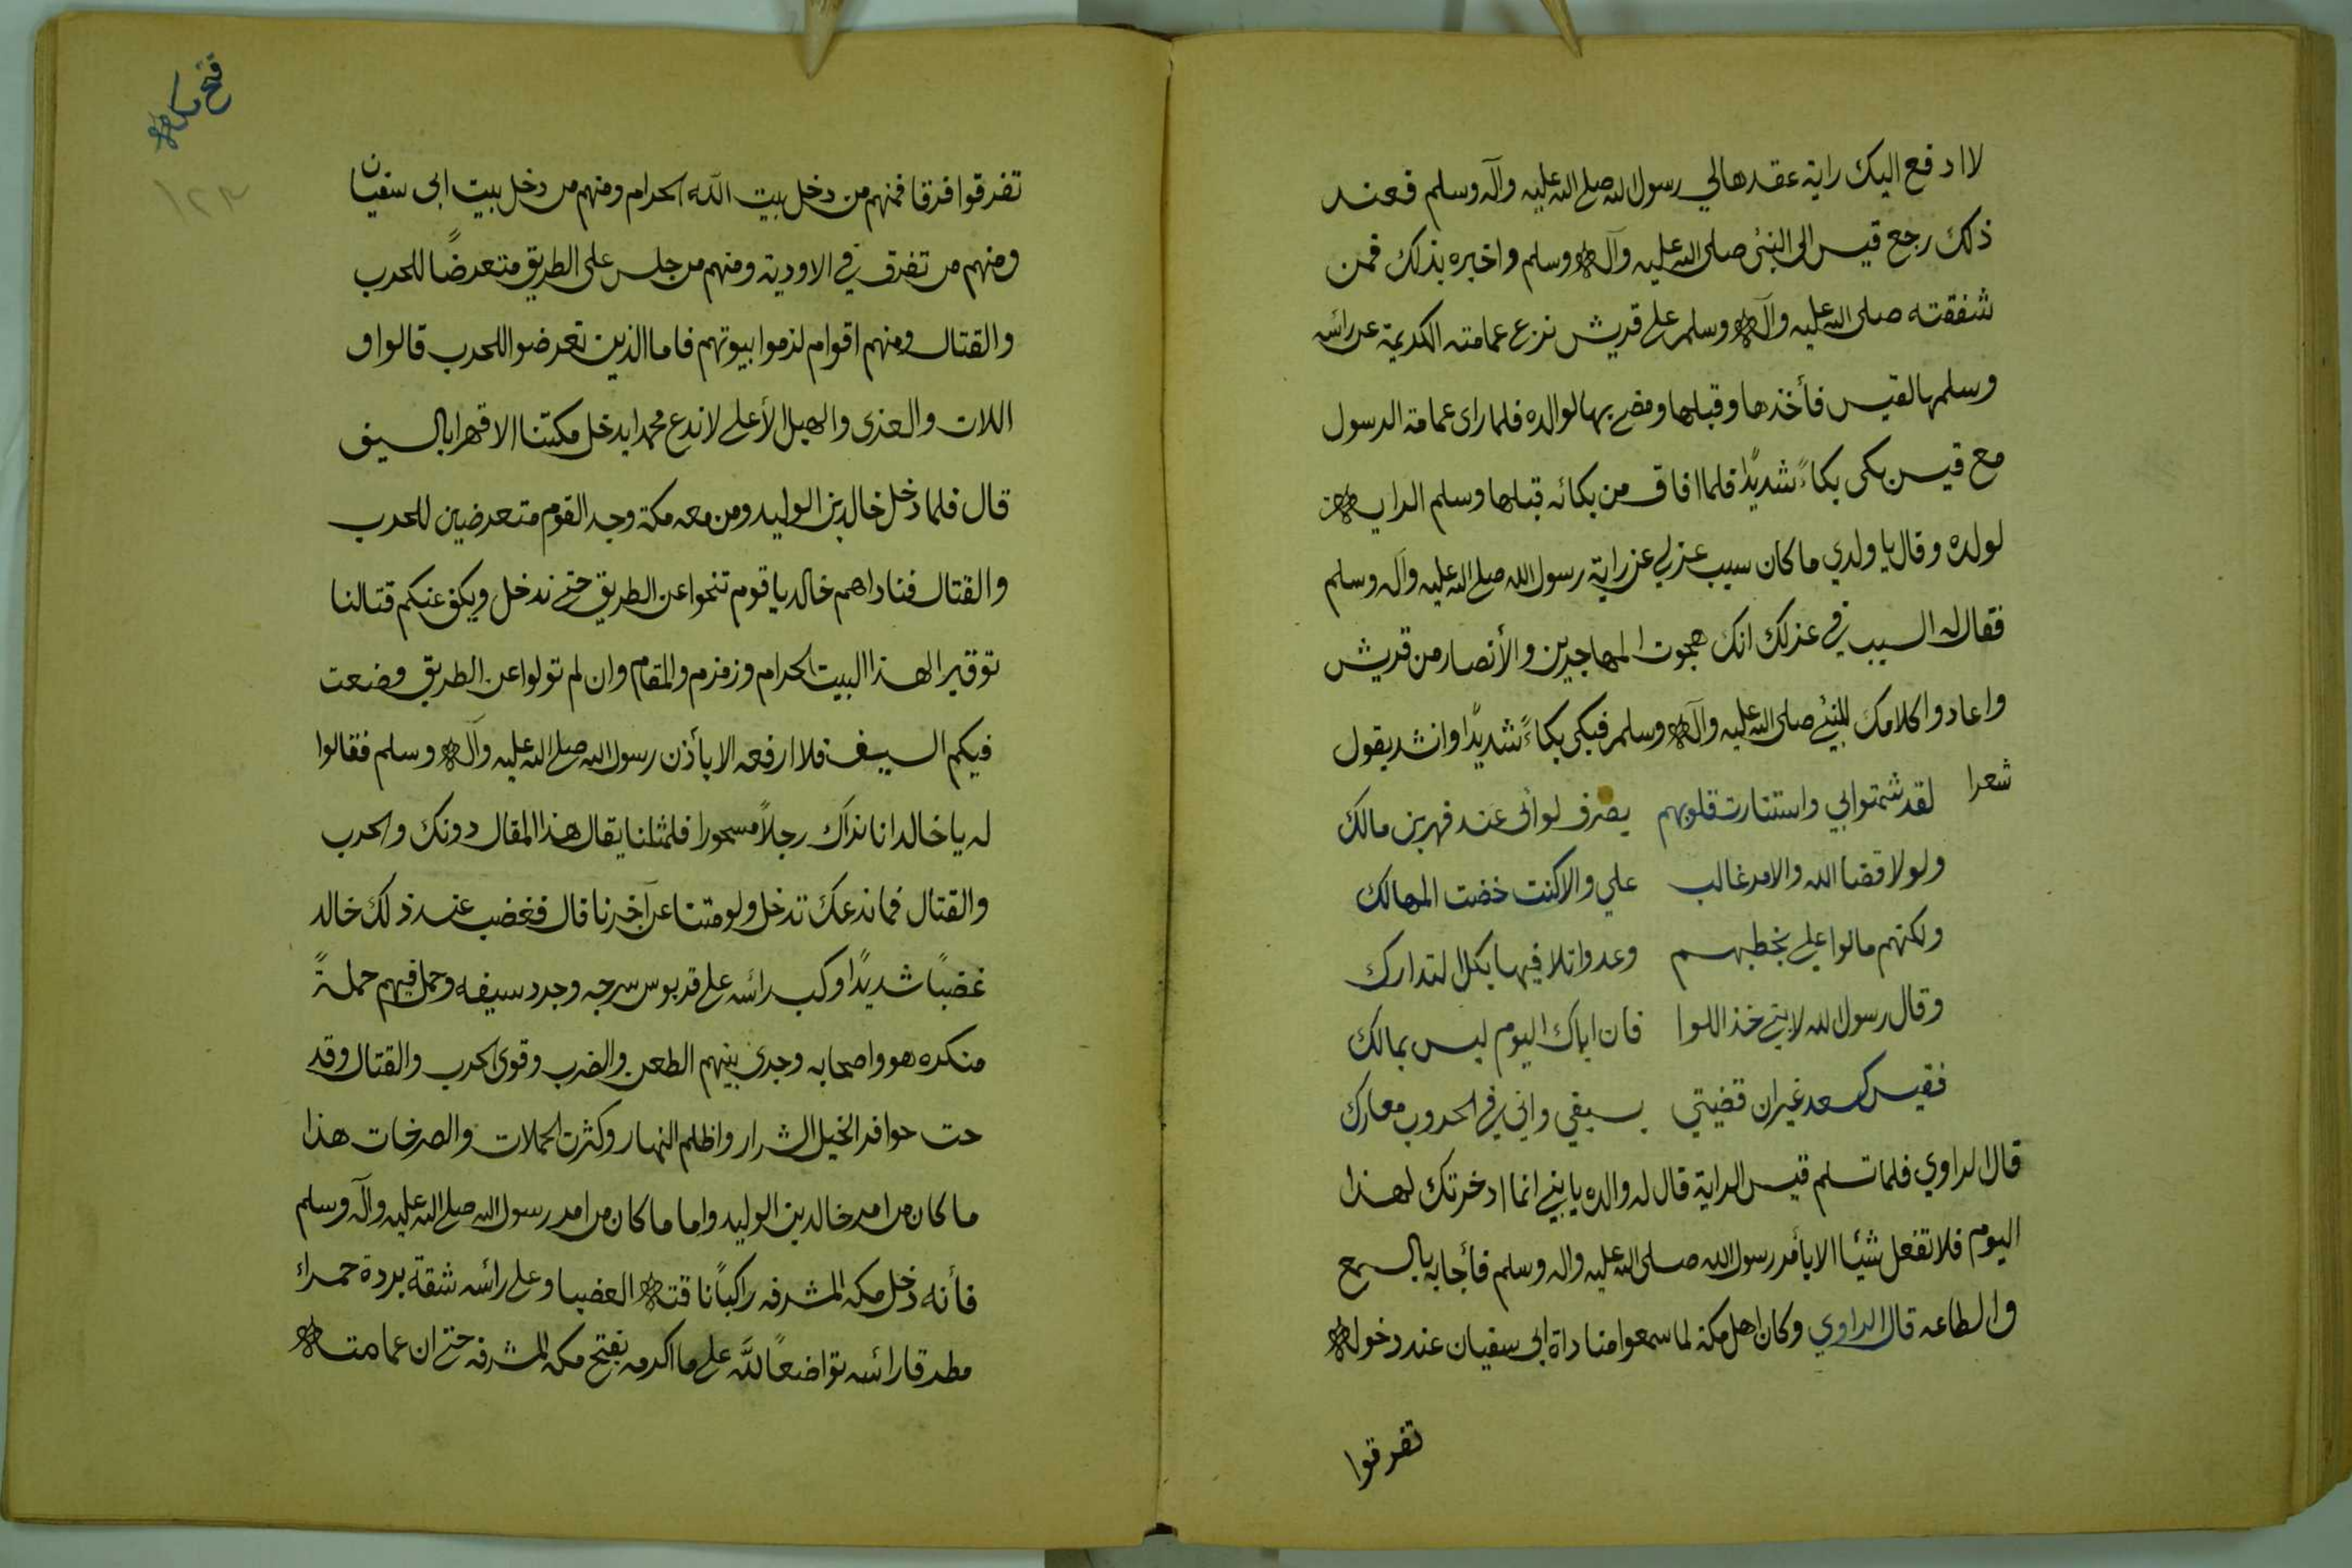 لا ادفع اليك راية عقدها لي رسول الله صلى الله عليه وآله وسلم فعند
ذلك رجع قيس الى النبئ صلى الله عليه وآله وسلم واخبره بذلك فمن
شفقته صلى الله عليه وآله وسلم على قريش نزع عمامته الكريمة عن رائسه
وسلمها لقيس فأخذها وقبلها ومضى بها لوالده فلما راى عمامة الرسول
مع قيس بكى بكاءً شديدًا فلما افاق من بكائه قبلها وسلم الراية
لولده وقال يا ولدي ما كان سبب عزلي عن راية رسول الله صلى الله عليه وآله وسلم
فقال له السبب في عزلك انك هجوت المهاجرين والأنصار من قريش
واعادوا كلامك للنبئ صلى الله عليه وآله وسلم فبكى بكاءً شديدًا وانشد يقول
شعرا لقد شمتوا بي واستنارت قلوبهم يصرف لوائى عند فهر بن مالك
ولولا قضا الله والامر غالب علي والا كنت خضت المهالك
ولكنهم مالوا علي بخطبهم وعدوا تلافيها بكل التدارك
وقال رسول الله لابني خذ اللوا فان اباك اليوم ليس بمالك
فقيس كسعد غير ان قضيتي بسبقي واني في الحروب معارك
قال الراوي فلما تسلم قيس الراية قال له والده يا بني انما ادخرتك لهذا
اليوم فلا تفعل شيئا الا بأمر رسول الله صلى الله عليه واله وسلم فأجابه بالسمع
والطاعه قال الراوي وكان اهل مكة لما سمعوا مناداة ابى سفيان عند دخوله
تفرقوا
فتح مكة
١٢٣
تفرقوا فرقا فمنهم من دخل بيت الله الحرام ومنهم من دخل بيت ابى سفيان
ومنهم من تفرق في الاودية ومنهم من جلس على الطريق متعرضًا للحرب
والقتال ومنهم اقوام لزموا بيوتهم فاما الذين تعرضوا للحرب قالوا و
اللات والعزى والهبل الأعلى لا ندع محمدا يدخل مكتنا الا قهرا بالسيف
قال فلما دخل خالد بن الوليد ومن معه مكة وجد القوم متعرضين للحرب
والقتال فناداهم خالد يا قوم تنحوا عن الطريق حتى ندخل ويكف عنكم قتالنا
توقيرا لهذا البيت الحرام وزمزم والمقام وان لم تولوا عن الطريق وضعت
فيكم السيف فلا ارفعه الا بأذن رسول الله صلى الله عليه وآله وسلم فقالوا
له يا خالد انا نراك رجلاً مسحورا فلمثلنا يقال هذا المقال دونك والحرب
والقتال فما ندعك تدخل ولو متنا عن آخرنا قال فغضب عند ذلك خالد
غضبًا شديدًا وكب رائسه على قربوس سرجه وجرد سيفه وحمل فيهم حملةً
منكره هو واصحابه وجرى بينهم الطعن والضرب وقوى الحرب والقتال وقد
حت حوافر الخيل الشرار واظلم النهار وكثرت الحملات والصرخات هذا
ما كان من امر خالد بن الوليد واما ما كان من امر رسول الله صلى الله عليه وآله وسلم
فأنه دخل مكه المشرفه راكبًا ناقته العضبا وعلى رائسه شقة بردة حمراء
مطرقا رائسه تواضعًا لله على ما اكرمه بفتح مكه المشرفه حتى ان عمامته